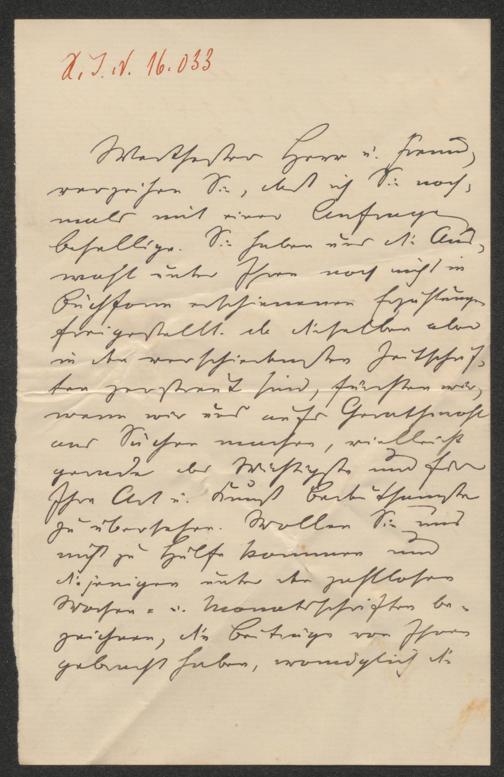 H. I. N. 16.033
Werthester Herr u. Freund,
verzeihen Sie, daß ich Sie noch-
mals mit einer Anfrage
behellige. Sie haben uns die Aus-
wahl unter Ihren noch nicht in
Buchform erschienenen Erzählungen
freigestellt. da dieselben aber
in den verschiedensten Zeitschrif-
ten zerstreut sind, fürchten wir,
wenn wir uns aufs Gerathewohl
ans Suchen machen, vielleicht
gerade das Wichtigste und für
Ihre Art u. Kunst Bedeutsamste
zu übersehen. Wollen Sie uns
nicht zu Hülfe kommen und
diejenigen unter den zahllosen
Wochen- u. Monatsschriften be-
zeichnen, die Beiträge von Ihnen
gebracht haben, womöglich die